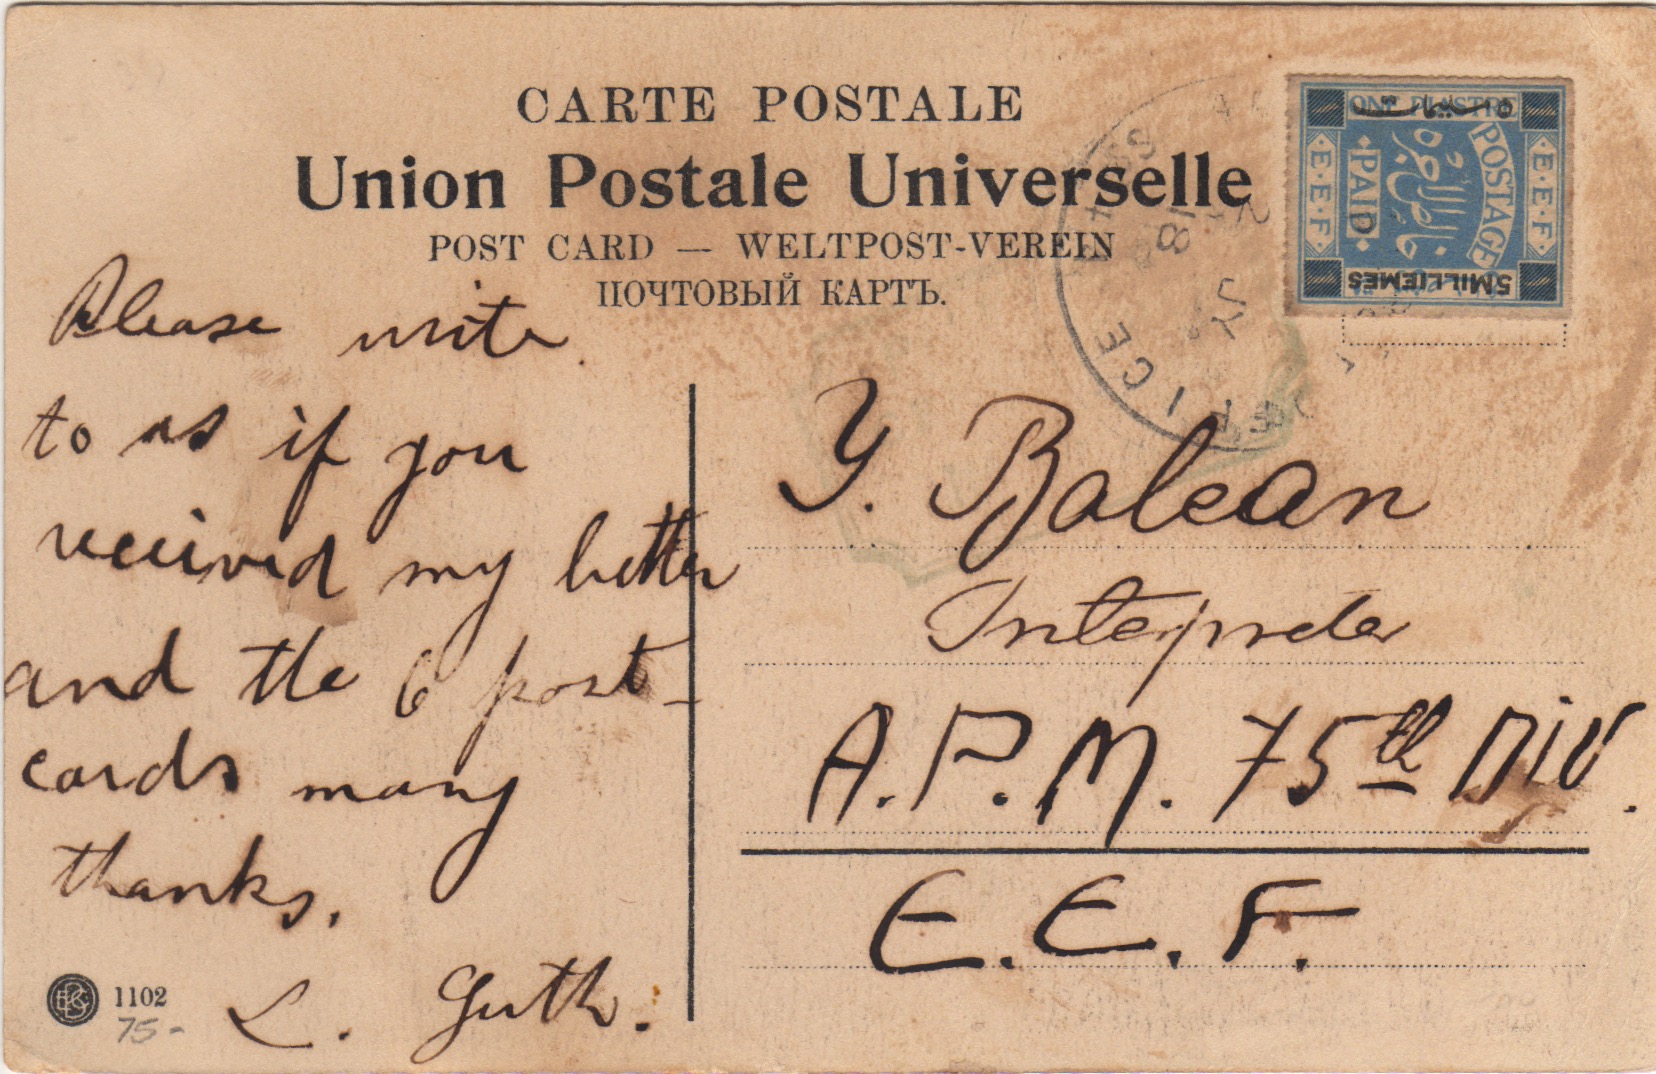 CARTE POSTALE
Union Postale Universelle
POST CARD — WELTPOST-VEREIN
ПОЧТОВЫЙ КАРТЪ.
POSTAGE
PAID
E.E.F.
E.E.F.
5 MILLIEMES
JY
18
Please write
to us if you
received my letter
and the 6 post-
cards many
thanks.
L. Guth.
Y. Balean
Interpreter
A.P.M. 75th DIV.
E.E.F.
1102
75-